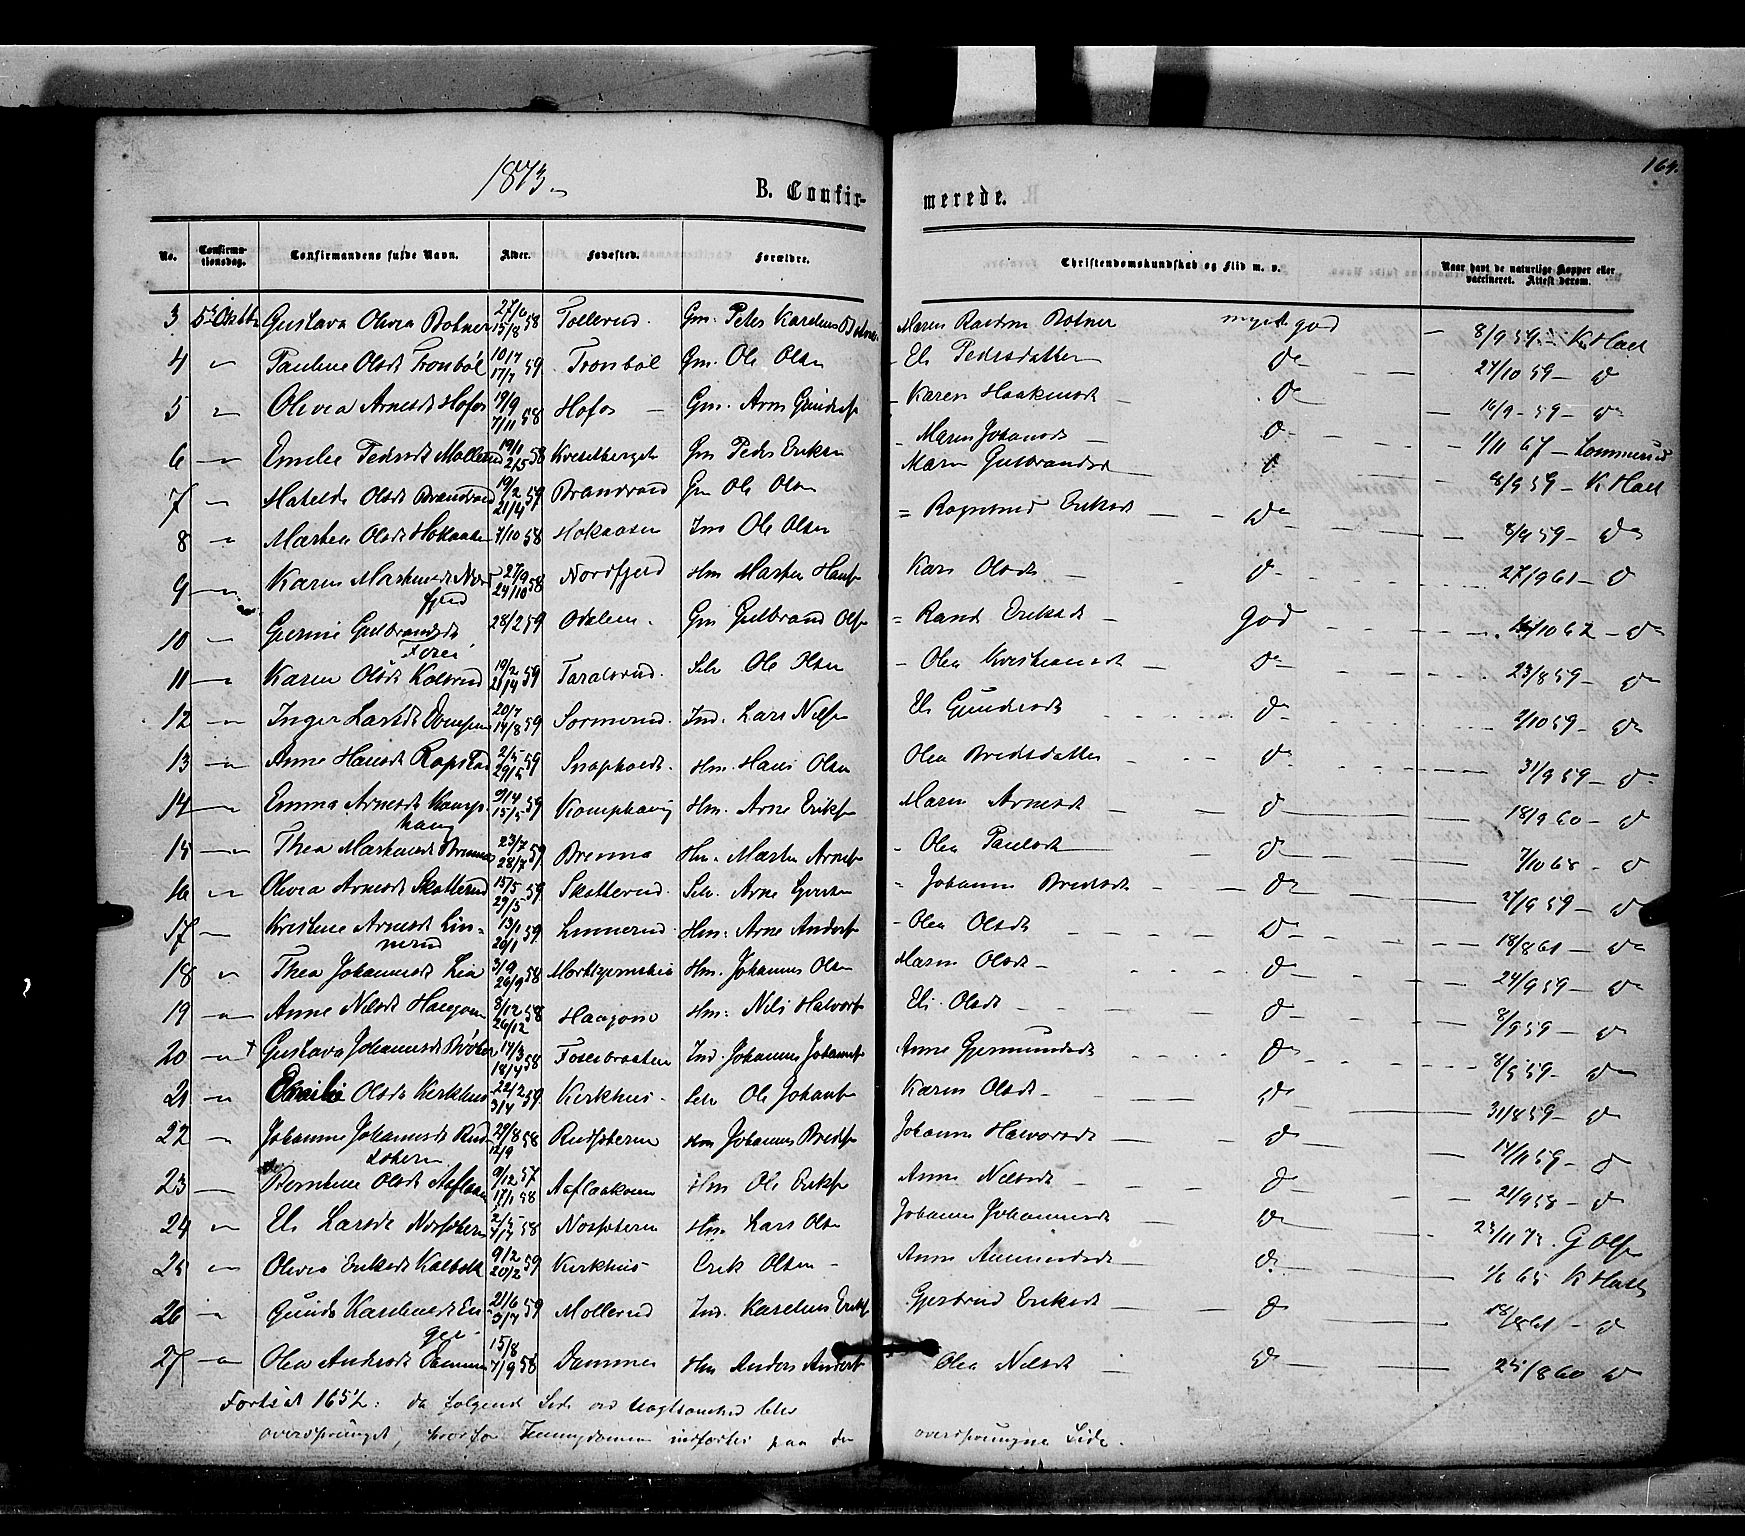 164.
1873.
B. Confirmerede.
No. Confirmationsdag. Confirmandens fulde Navn. Alder. Fødested. Forældre. Christendomskundskab og Flid m. v. Naar havt de naturlige Kopper eller vaccineret. Attest derom.
3 5te Oktbr Gustava Olivea Botner 27/6 15/8 58 Tollerud. Gm. Peter Karelius Botner Maren Botner myget god — 8/9 59 — K Hall
4 — Pauline Olsdt Tronbøl 17/7 59 Tronbøl Gm. Ole Olsen - Eli Pedersdatter Do — 27/10 59 — Do
5 — Olivea Arnesdt Hofos 19/9 7/11 58 Hofos — Gm. Arne - Karen Haakensdt — Do — 16/9 - 59 — Do
6 — Emilie Pedersdt Mollerud 19/1 2/5 58 Kveselberget Gm Peder Eriksen - Maren Johansdt — Do 1/11 67 — Lommerud
7 — Matelde Olsdt Brandvold 19/2 21/4 59 Brandvold Gm Ole Olsen Maren Gulbrandsdt — Do 8/9 59 — K Hall
8 — Marthea Olsdt Hokaasen 4/10 58 Hokaasen Ind Ole Olsen = Ragnhild Eriksdt — Do — 8/9 59 — Do
9 — Karen Martinsdt Nordfjeld 27/9 24/10 58 Nordfjeld Hm Martin Hansen Kari Olsdt — Do 27/9 61 — Do
10 — Gulbrandsdt 28/2 59 Odalen. Gm Gulbrand Olsen = Randi Eriksdt — god 10 62 — Do
11 — Karen Olsdt 19/2 21/4 59 Taralsrud. Selv Ole Olsen - Olea Kristiansdt — Do 23/8 59 — Do
12 — Inger Larsdt 20/7 14/8 59 Sormerud. Ind. Lars Nilsen Eli Gundersdt Do 2/10 59 — Do
13 — Anne Hansdt Ropstad 2/5 29/5 59 Hm. Hans Olsen Olea Bredesdatter Do 31/9 59 — Do
14 — Emma Arnesdt Kamphaug 9/4 15/5 59 Kamphaug Hm. Arne Eriksen Maren Arnesdt — Do 18/9 60 — Do
15 — Thea Martinsdt Brenna 23/7 28/7 59 Brenna Hm. Martin Arnesen - Olea Paulsdt — Do — 7/10 68 — Do
16 — Olivea Arnesdt Skatterud 15/5 29/5 59 Skatterud. Selv. Arne - Johanne Bredesdt — Do — 2/9 59 — Do
17 — Kristine Arnesdt Linnerud 13/1 20/1 59 Linnerud Hm. Arne Andersen - Olea Olsdt Do 18/8 61 — Do
18 — Thea Johannesdt Lia 3/9 26/9 58 Hm. Johannes Olsen Maren Olsdt — Do 24/9 59 — Do
19 — Anne Nilsdt Haugom 8/12 26/12 58 Haugom Hm. Nils Halvorsen Eli Olsdt Do 8/9 59 — Do
20 — Gustava Johannesdt 14/3 18/4 58 Fosebraaten Ind. Johannes Johannesen Anne Gjermundsdt Do 8/5 59 — Do
21 — Emilie Olsdt Kirkhus 22/2 3/4 59 Kirkhus — Selv Ole Johansen Karen Olsdt — Do — 31/8 59 — Do
22 — Johanne Johannesdt Rudstoen 29/8 12/9 58 Rudstoen Hm Johannes Bredesen Johanne Halvorsdt — Do — 14/11 59 — Do
23 — Berntine Olsdt 9/12 57 17/1 58 Hm Ole Eriksen Anne Nilsdt — Do — 21/9 58 — Do
24 — Eli Larsdt 58 Hm. Lars Olsen Johanne Johannesdt — Do 23/11 73. G Olsen
25 — Olivea Eriksdt 9/2 20/2 59 Kirkhus Erik Olsen — Anne Amundsdt — Do 1/6 65 K Hall
26 — Gunda Karelinsdt Enger 21/6 3/7 59 Mollerud Ind. Karelius Eriksen Gjertrud Eriksdt — Do 18/ 61 — Do
27 — Olea Andersdt Dammen 15/8 7/9 58 Dammen Hm Anders Andersen Olea Nilsdt Do — 25/8 60 Do
Fortsat 165½: da følgende Side ved Uagtsomhed blev
oversprunget, hvorfor indføres paa den oversprungne Side.